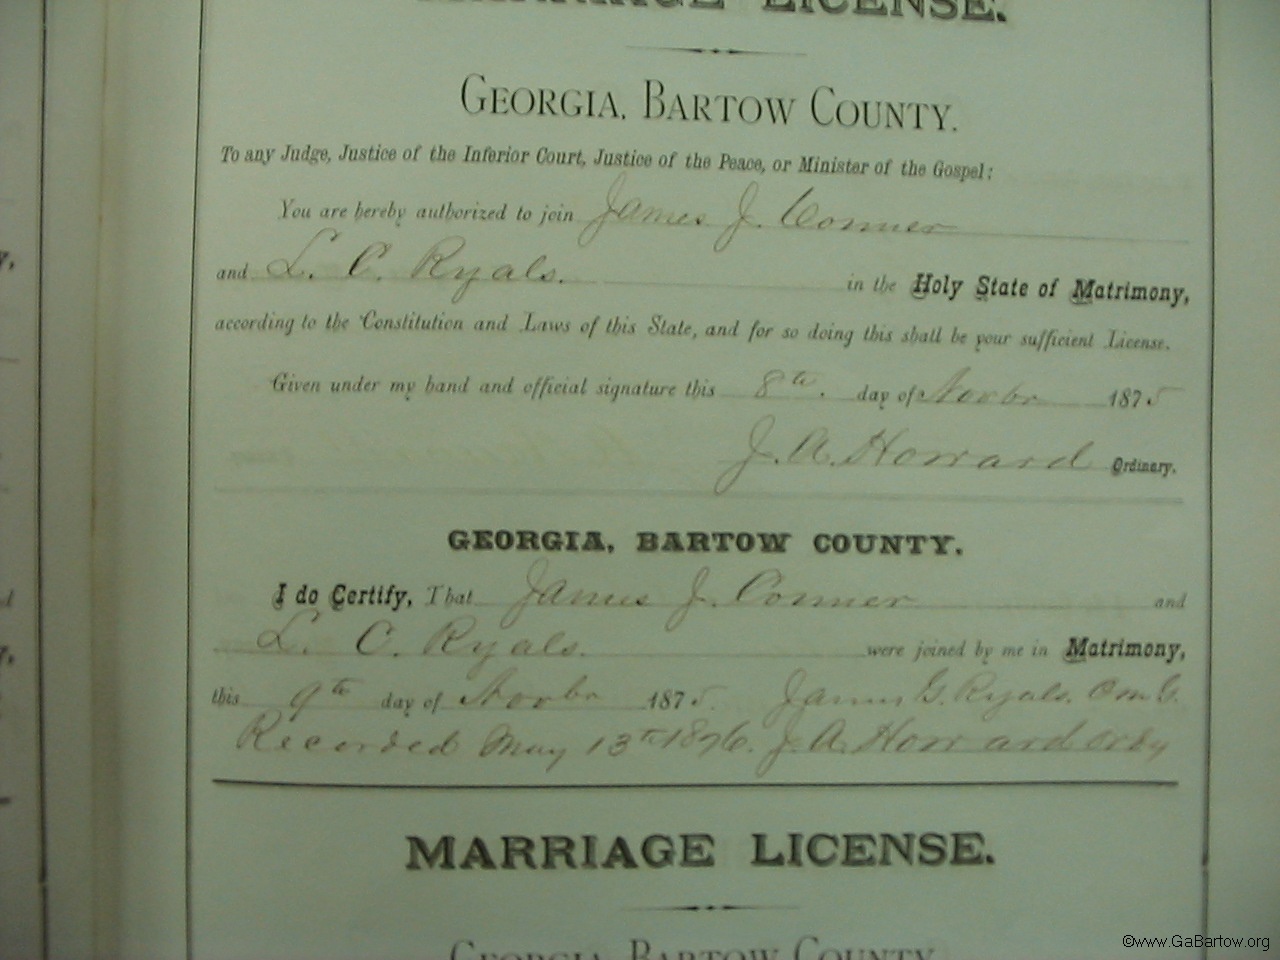 MARRIAGE LICENSE.
GEORGIA, BARTOW COUNTY.
To any Judge, Justice of the Inferior Court, Justice of the Peace, or Minister of the Gospel:
You are hereby authorized to join James J. Conner
and L. C. Ryals. in the Holy State of Matrimony,
according to the Constitution and Laws of this State, and for so doing this shall be your sufficient License.
Given under my hand and official signature this 8th. day of Novbr 1875
J. A. Howard Ordinary.
GEORGIA, BARTOW COUNTY.
I do Certify, That James J. Conner and
L. C. Ryals. were joined by me in Matrimony,
this 9th day of Novbr 1875. James G. Ryals. O M G.
Recorded May 13th 1876. J A Howard Ordy
MARRIAGE LICENSE.
GEORGIA, BARTOW COUNTY.
©www.GaBartow.org